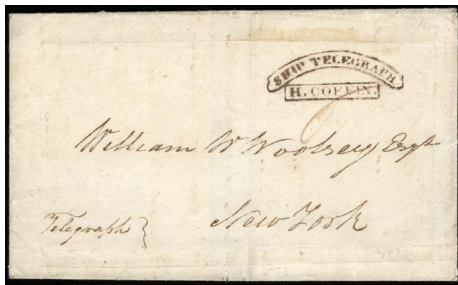 SHIP TELEGRAPH
H. COFFIN.
William W Woolsey Esqr
New York
Telegraph